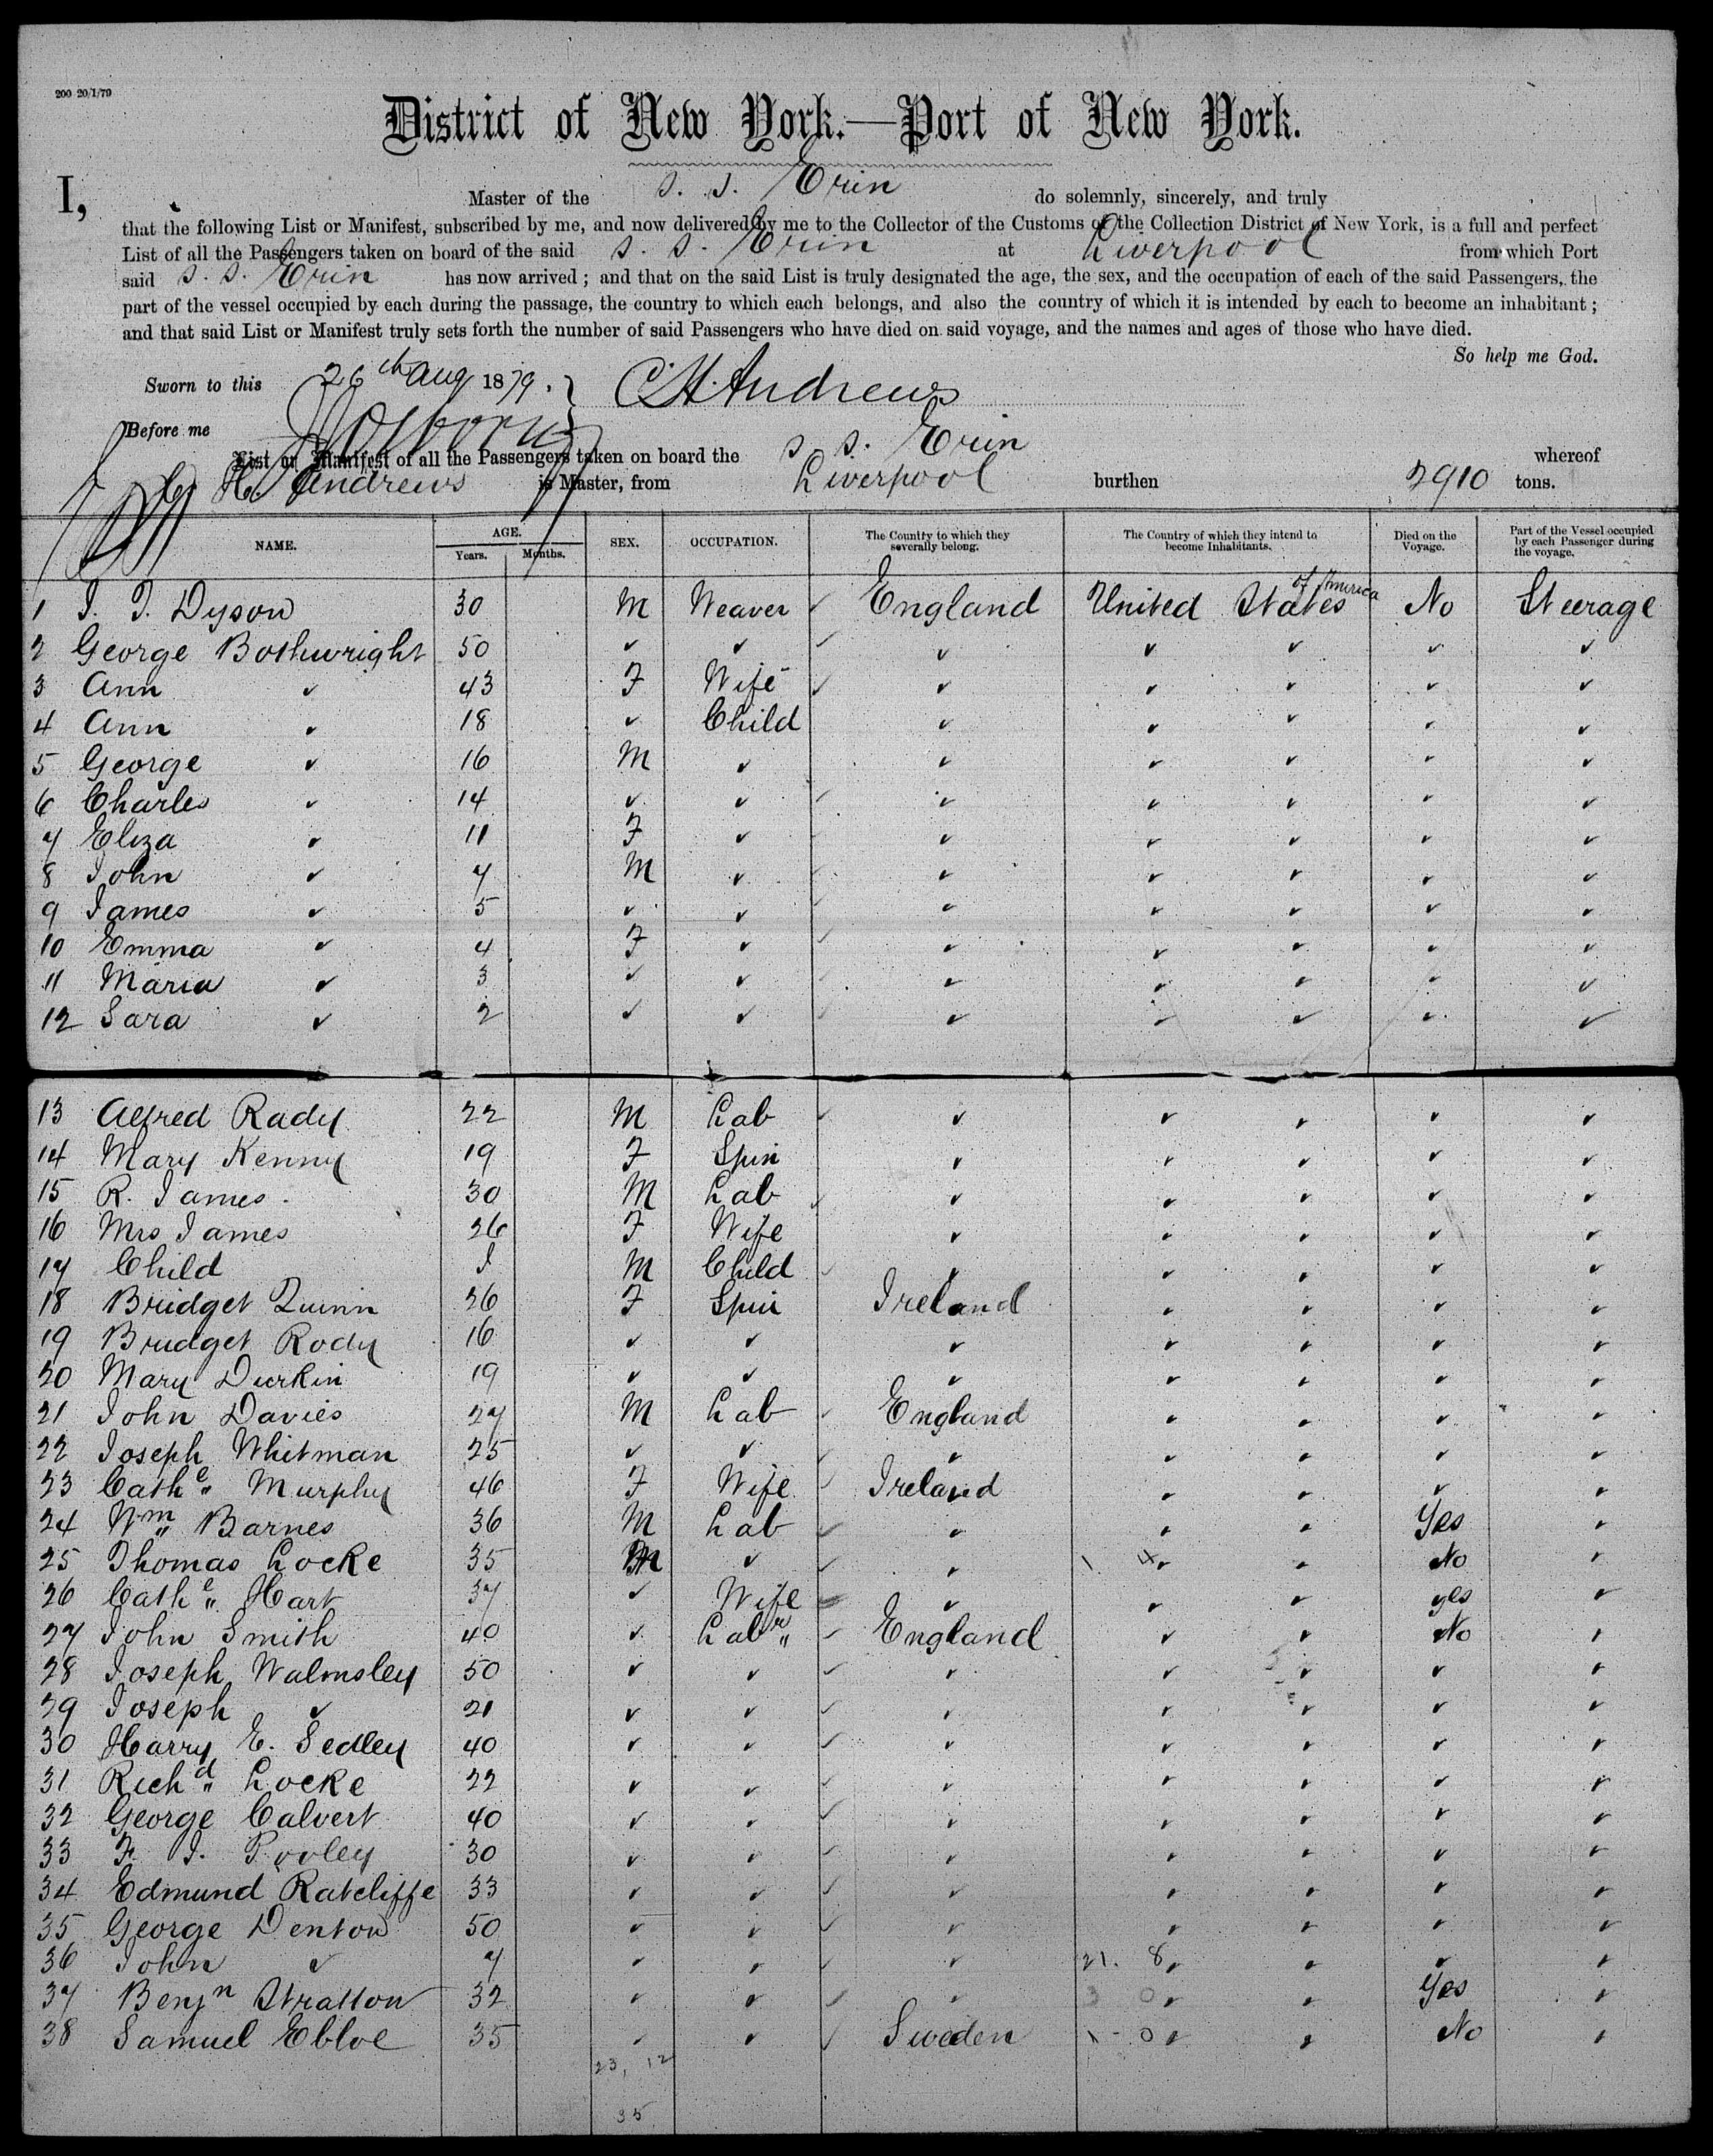 200 20/1/79
District of New York.—Port of New York.
I, Master of the s. s. Erin do solemnly, sincerely, and truly
that the following List or Manifest, subscribed by me, and now delivered by me to the Collector of the Customs of the Collection District of New York, is a full and perfect
List of all the Passengers taken on board of the said s. s. Erin at Liverpool from which Port
said s. s. Erin has now arrived; and that on the said List is truly designated the age, the sex, and the occupation of each of the said Passengers, the
part of the vessel occupied by each during the passage, the country to which each belongs, and also the country of which it is intended by each to become an inhabitant;
and that said List or Manifest truly sets forth the number of said Passengers who have died on said voyage, and the names and ages of those who have died.
So help me God.
Sworn to this 26th Aug 1879. } C H Andrews
Before me
List or Manifest of all the Passengers taken on board the s s. Erin whereof
H. Andrews is Master, from Liverpool burthen 2910 tons.
NAME. AGE. Years. Months. SEX. OCCUPATION. The Country to which they severally belong. The Country of which they intend to become Inhabitants. Died on the Voyage. Part of the Vessel occupied by each Passenger during the voyage.
1 J. J. Dyson 30 M Weaver ✓ England United States of America No Steerage
2 George Bothwright 50 ✓ ✓ ✓ ✓ ✓ ✓ ✓ ✓
3 Ann ✓ 43 F Wife ✓ ✓ ✓ ✓ ✓ ✓
4 Ann ✓ 18 ✓ Child ✓ ✓ ✓ ✓ ✓
5 George ✓ 16 M ✓ ✓ ✓ ✓ ✓ ✓
6 Charles ✓ 14 ✓ ✓ ✓ ✓ ✓ ✓ ✓ ✓
7 Eliza ✓ 11 F ✓ ✓ ✓ ✓ ✓ ✓ ✓
8 John ✓ 7 M ✓ ✓ ✓ ✓ ✓ ✓ ✓
9 James ✓ 5 ✓ ✓ ✓ ✓ ✓ ✓ ✓ ✓
10 Emma ✓ 4 F ✓ ✓ ✓ ✓ ✓ ✓ ✓
11 Maria ✓ 3 ✓ ✓ ✓ ✓ ✓ ✓ ✓ ✓
12 Sara ✓ 2 ✓ ✓ ✓ ✓ ✓ ✓ ✓ ✓
13 Alfred Rady 22 M Lab ✓ ✓ ✓ ✓ ✓ ✓
14 Mary Kenny 19 F Spin ✓ ✓ ✓ ✓ ✓
15 R. James 30 M Lab ✓ ✓ ✓ ✓ ✓ ✓
16 Mrs James 26 F Wife ✓ ✓ ✓ ✓ ✓
17 Child 1 M Child ✓ ✓ ✓ ✓ ✓ ✓
18 Bridget Quinn 26 F Spin Ireland ✓ ✓ ✓ ✓
19 Bridget Rody 16 ✓ ✓ ✓ ✓ ✓ ✓ ✓
20 Mary Durkin 19 ✓ ✓ ✓ ✓ ✓ ✓ ✓
21 John Davies 27 M Lab ✓ England ✓ ✓ ✓ ✓
22 Joseph Whitman 25 ✓ ✓ ✓ ✓ ✓ ✓ ✓ ✓
23 Cathe " Murphy 46 F Wife ✓ Ireland ✓ ✓ ✓ ✓
24 Wm " Barnes 36 M Lab ✓ ✓ ✓ ✓ Yes ✓
25 Thomas Locke 35 M ✓ ✓ ✓ 1 4 ✓ ✓ No ✓
26 Cathe " Hart 37 ✓ Wife ✓ ✓ ✓ yes ✓
27 John Smith 40 ✓ Labr " ✓ England ✓ ✓ No ✓
28 Joseph Walmsley 50 ✓ ✓ ✓ ✓ ✓ ✓ ✓ ✓
29 Joseph ✓ 21 ✓ ✓ ✓ ✓ ✓ ✓ ✓ ✓
30 Harry E. Sedley 40 ✓ ✓ ✓ ✓ ✓ ✓ ✓ ✓
31 Richd " Locke 22 ✓ ✓ ✓ ✓ ✓ ✓ ✓ ✓
32 George Calvert 40 ✓ ✓ ✓ ✓ ✓ ✓ ✓ ✓
33 F. J. Pooley 30 ✓ ✓ ✓ ✓ ✓ ✓ ✓ ✓
34 Edmund Ratcliffe 33 ✓ ✓ ✓ ✓ ✓ ✓ ✓ ✓
35 George Denton 50 ✓ ✓ ✓ ✓ ✓ ✓ ✓ ✓
36 John ✓ 7 ✓ ✓ ✓ ✓ 21. 8 ✓ ✓ ✓ ✓
37 Benjn Stratton 32 ✓ ✓ ✓ ✓ 3 0 ✓ ✓ Yes ✓
38 Samuel Ebloe 35 ✓ ✓ ✓ Sweden 1 - 0 ✓ ✓ No ✓
23, 12
35